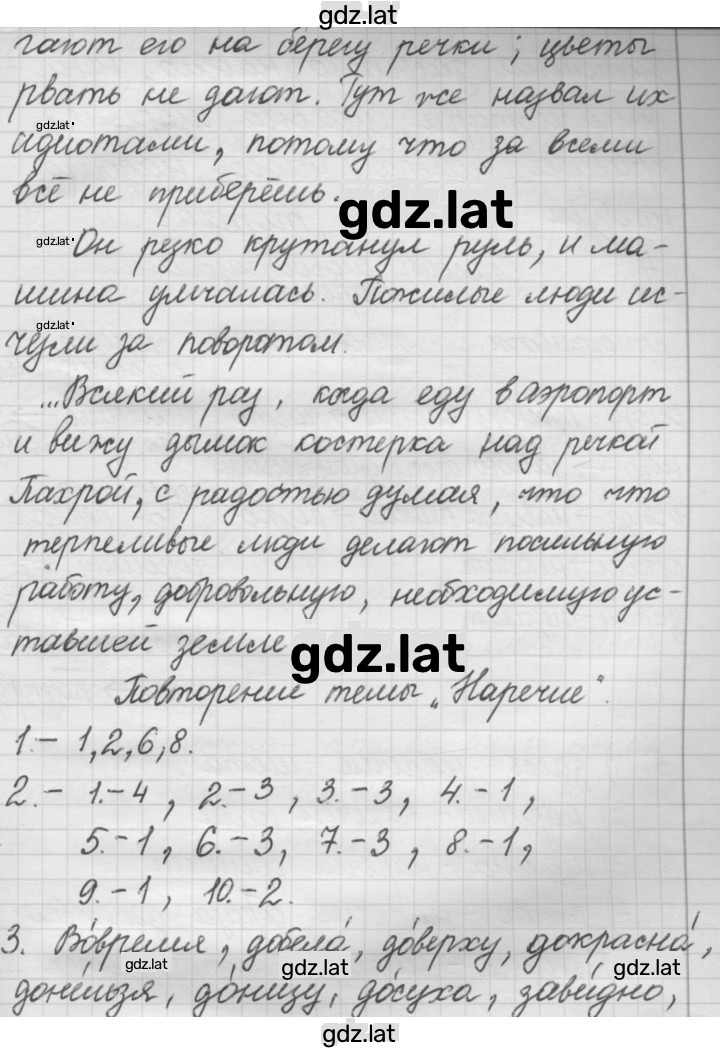 gdz.lat
гают его на берегу речки; цветы
рвать не дают. Тут же назвал их
gdz.lat
идиотами, потому что за всеми
всё не приберёшь.
gdz.lat
gdz.lat
Он резко крутанул руль, и ма-
шина умчалась. Пожилые люди ис-
gdz.lat
чезли за поворотом.
...Всякий раз, когда еду в аэропорт
и вижу дымок костерка над речкой
Пахрой, с радостью думая, что что
терпеливые люди делают посильную
работу, добровольную, необходимую ус-
тавшей земле
gdz.lat
Повторение темы „Наречие“.
1.- 1,2,6,8.
2.- 1.-4, 2.-3, 3.-3, 4.-1,
5.-1, 6.-3, 7.-3, 8.-1,
9.-1, 10.-2.
3. Во́время, добела́, до́верху, докрасна́,
gdz.lat
gdz.lat
gdz.lat
доне́льзя, до́низу, до́суха, зави́дно,
gdz.lat